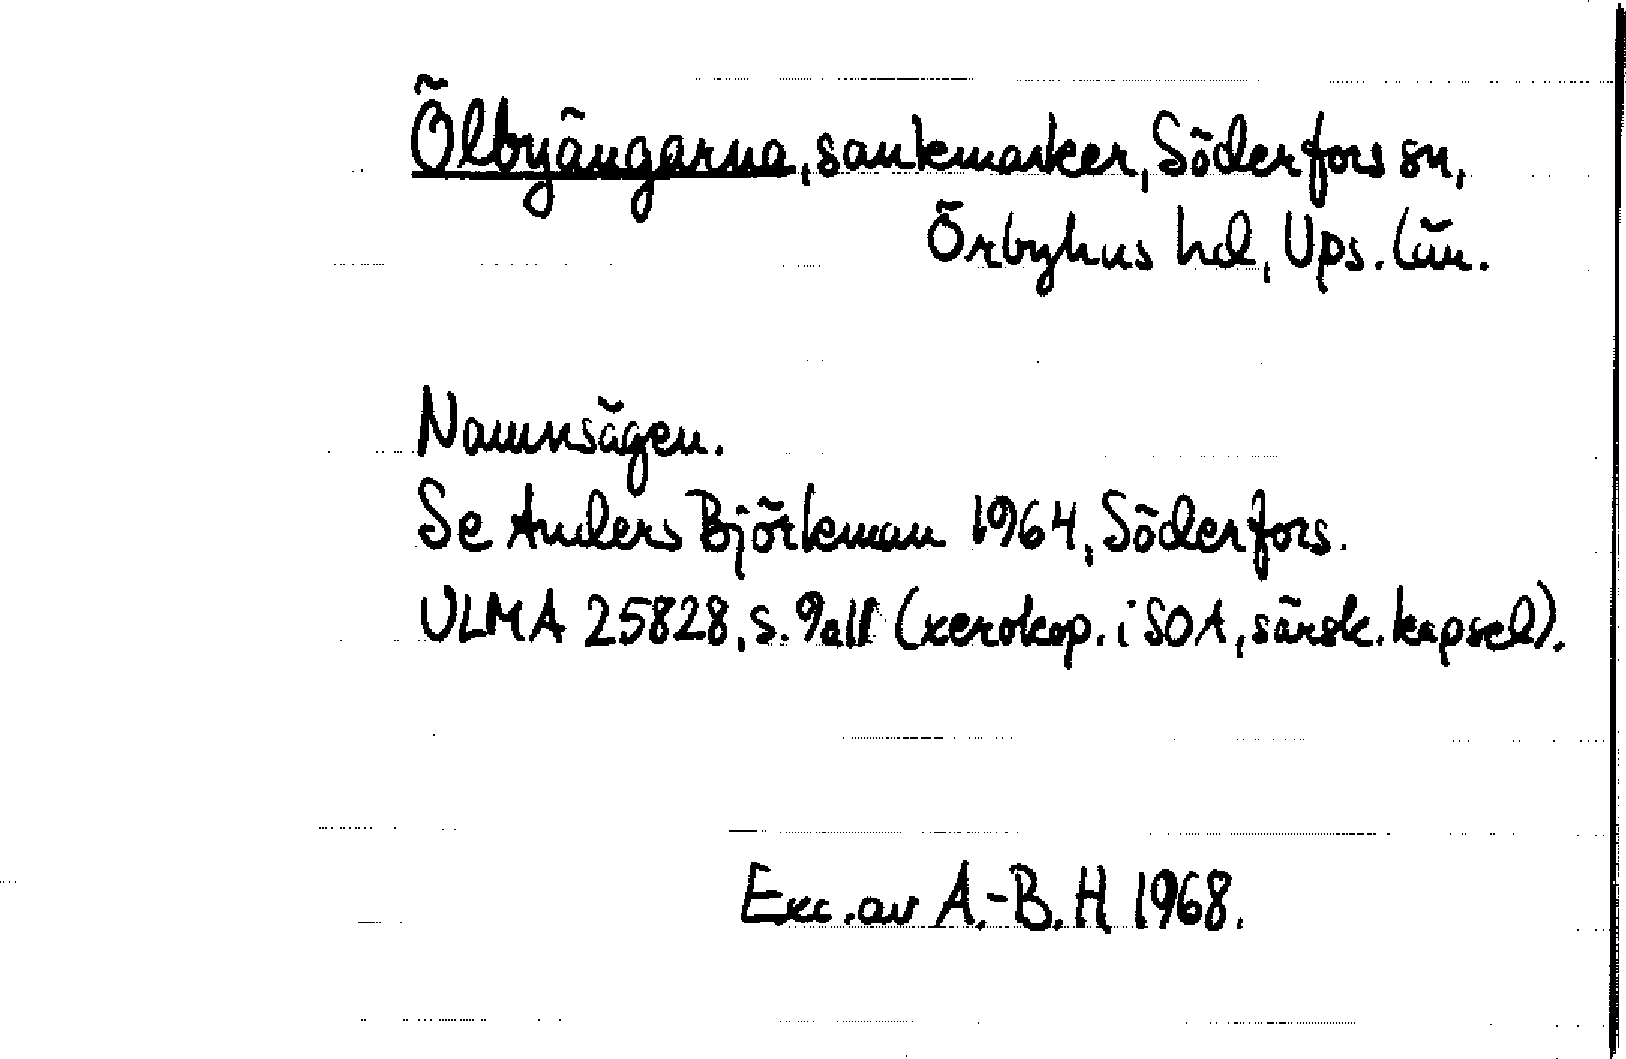 Ölbyängarna, sankmarker, Söderfors sn,
Örbyhus hd, Ups. län.
Namnsägen.
Se Anders Björkman 1964, Söderfors.
ULMA 25828, s. 9 (xerokop. i SOA, särsk. kapsel).
Exc. av A.-B. H 1968.